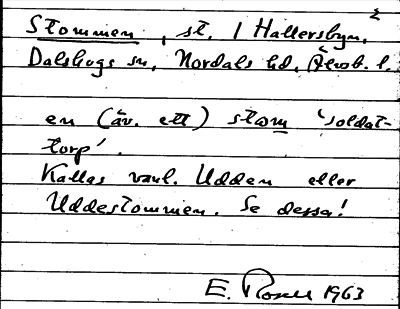 Stommen, st. / Hallersbyn,
Dalskogs sn, Nordals hd, Älvsb. l.
en (äv. ett) stom 'soldat-
torp'.
Kallas vanl. Udden eller
Uddestommen. Se dessa!
E. Rosell 1963